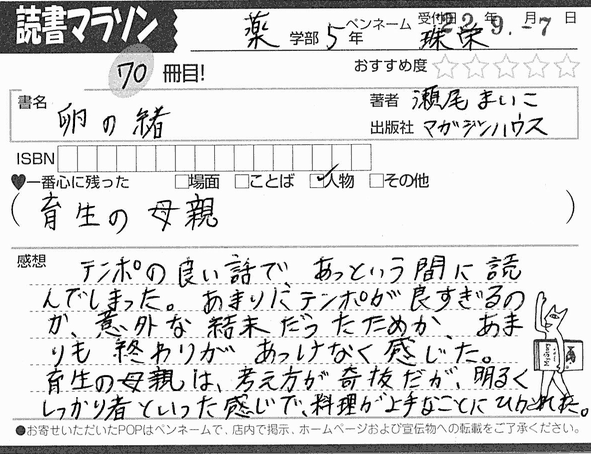 読書マラソン
薬 学部 5 年 ペンネーム 珠栄
受付日 22年 9.月-7日
70 冊目!
おすすめ度 ☆☆☆☆☆
書名 卵の緒
著者 瀬尾まいこ
出版社 マガジンハウス
ISBN
♥一番心に残った □場面 □ことば ☑人物 □その他
(育生の母親)
感想
テンポの良い話で、あっという間に読
んでしまった。あまりにテンポが良すぎるの
か、意外な結末だったためか、あま
りも終わりがあっけなく感じた。
育生の母親は、考え方が奇抜だが、明るく
しっかり者といった感じで、料理が上手なことにひかれた。
●お寄せいただいたPOPはペンネームで、店内で掲示、ホームページおよび宣伝物への転載をご了承ください。